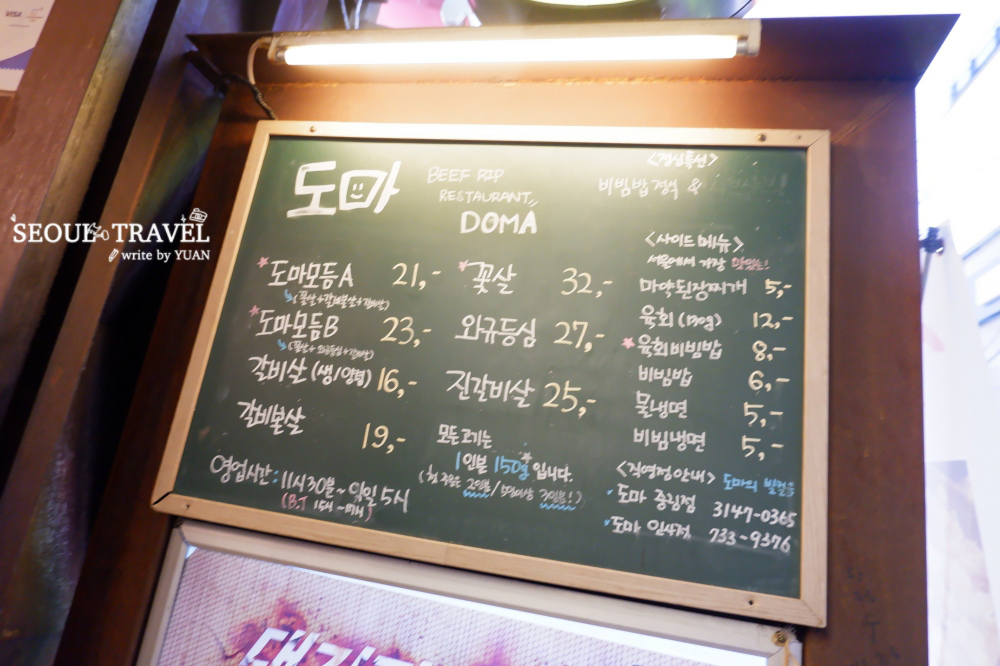 VISA
SEOUL TRAVEL
write by YUAN
도마
BEEF RIP
RESTAURANT
DOMA
*도마모듬A 21,-
(꽃살+갈비본살+갈비살)
*도마모듬B 23,-
(꽃살+와규등심+갈비살)
갈비살 (생/양념) 16,-
갈비본살 19,-
*꽃살 32,-
와규등심 27,-
진갈비살 25,-
모든고기는
1인분 150g 입니다.
(첫 주문은 2인분/5명이상 3인분!)
영업시간: 11시30분~익일 5시
(B.T 15시~17시)
<점심특선>
비빔밥 정식 &
<사이드 메뉴>
서울에서 가장 맛있는!
마약된장찌개 5,-
육회 (130g) 12,-
*육회비빔밥 8,-
비빔밥 6,-
물냉면 5,-
비빔냉면 5,-
<직영점안내> 도마의 발걸음
도마 중림점 3147-0365
도마 인사점 733-9376